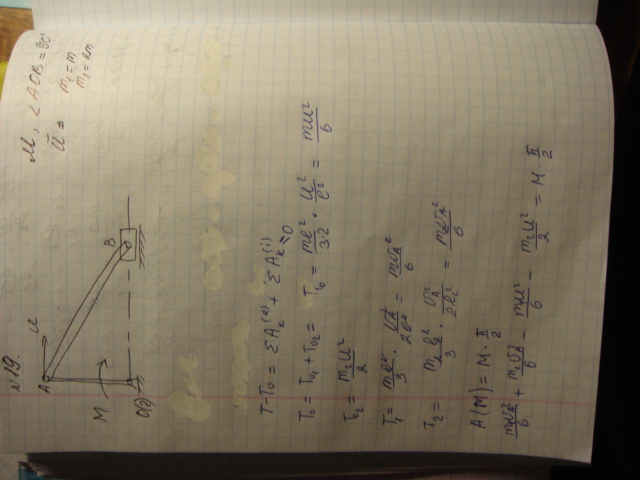 N19.
M, ∠AOB = 90°
m₁ = m
m₂ = 2m
ū =
A u B
M
T - T₀ = ΣAₖ⁽ᵉ⁾ + ΣAₖ⁽ⁱ⁾ = 0
T₀ = T₀₁ + T₀₂ =
T₀ = mℓ²/3·2 · u²/ℓ² = mu²/6
T₀₂ = m₂u²/2
T₁ = mℓ²/3 · v_A²/2ℓ² = mv_A²/6
T₂ = m₂ℓ₂²/3 · v_A²/2ℓ₂² = m₂v_A²/6
A(M) = M · π/2
mv_A²/6 + m₂v_A²/6 - mu²/6 - m₂u²/2 = M · π/2